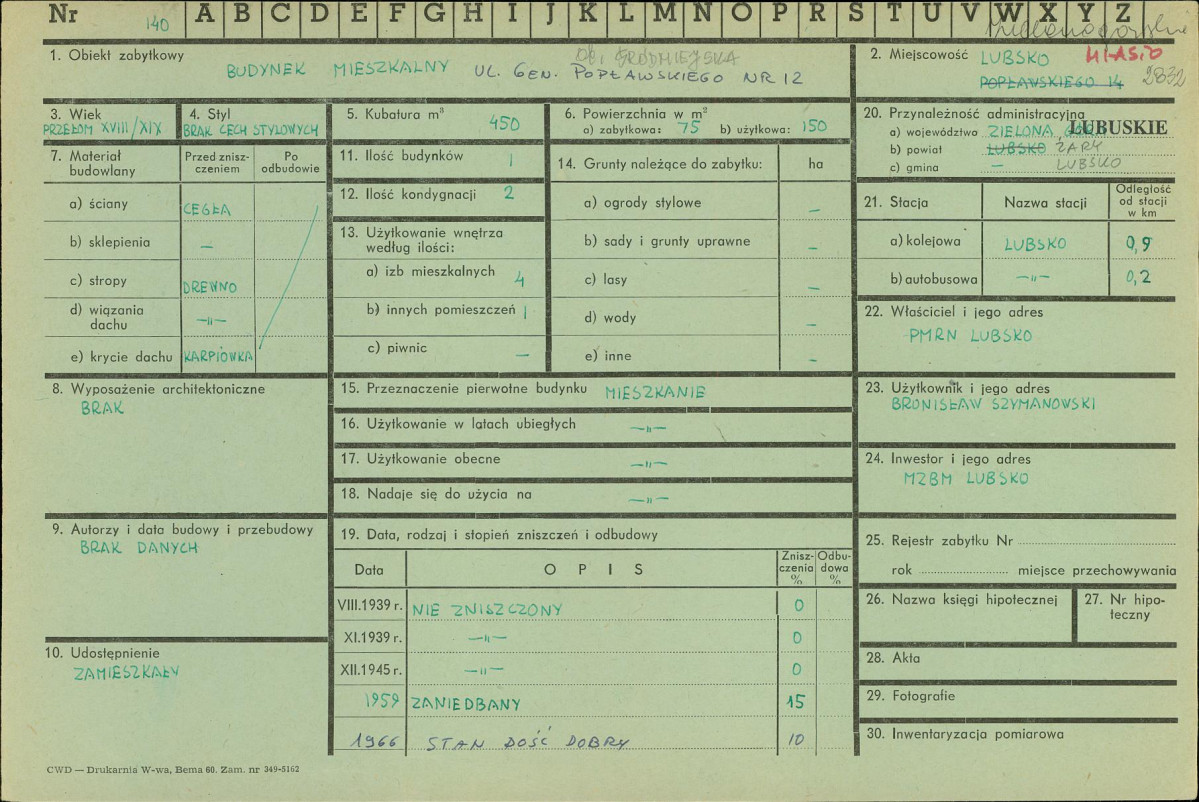 Nr 140 A B C D E F G H I J K L M N O P R S T U V W X Y Z
1. Obiekt zabytkowy
BUDYNEK MIESZKALNY UL. GEN. POPŁAWSKIEGO NR 12
2. Miejscowość LUBSKO MIASTO
POPŁAWSKIEGO 14 2832
3. Wiek
PRZEŁOM XVIII/XIX
4. Styl
BRAK CECH STYLOWYCH
5. Kubatura m³ 450
6. Powierzchnia w m²
a) zabytkowa: 75 b) użytkowa: 150
20. Przynależność administracyjna
a) województwo ZIELONA GÓRA LUBUSKIE
b) powiat LUBSKO ŻARY
c) gmina — LUBSKO
7. Materiał budowlany
Przed zniszczeniem
Po odbudowie
a) ściany CEGŁA
b) sklepienia —
c) stropy DREWNO
d) wiązania dachu —„—
e) krycie dachu KARPIÓWKA
11. Ilość budynków 1
12. Ilość kondygnacji 2
13. Użytkowanie wnętrza
według ilości:
a) izb mieszkalnych 4
b) innych pomieszczeń 1
c) piwnic —
14. Grunty należące do zabytku: ha
a) ogrody stylowe —
b) sady i grunty uprawne —
c) lasy —
d) wody —
e) inne —
21. Stacja
Nazwa stacji
Odległość
od stacji
w km
a) kolejowa LUBSKO 0,9
b) autobusowa —„— 0,2
22. Właściciel i jego adres
PMRN LUBSKO
8. Wyposażenie architektoniczne
BRAK
15. Przeznaczenie pierwotne budynku MIESZKANIE
16. Użytkowanie w latach ubiegłych —„—
17. Użytkowanie obecne —„—
18. Nadaje się do użycia na —„—
23. Użytkownik i jego adres
BRONISŁAW SZYMANOWSKI
24. Inwestor i jego adres
MZBM LUBSKO
9. Autorzy i data budowy i przebudowy
BRAK DANYCH
10. Udostępnienie
ZAMIESZKAŁY
19. Data, rodzaj i stopień zniszczeń i odbudowy
Data O P I S Znisz-czenia % Odbu-dowa %
VIII.1939 r. NIE ZNISZCZONY 0
XI.1939 r. —„— 0
XII.1945 r. —„— 0
1959 ZANIEDBANY 15
1966 STAN DOŚĆ DOBRY 10
25. Rejestr zabytku Nr
rok miejsce przechowywania
26. Nazwa księgi hipotecznej
27. Nr hipo-
teczny
28. Akta
29. Fotografie
30. Inwentaryzacja pomiarowa
CWD — Drukarnia W-wa, Bema 60. Zam. nr 349-5162